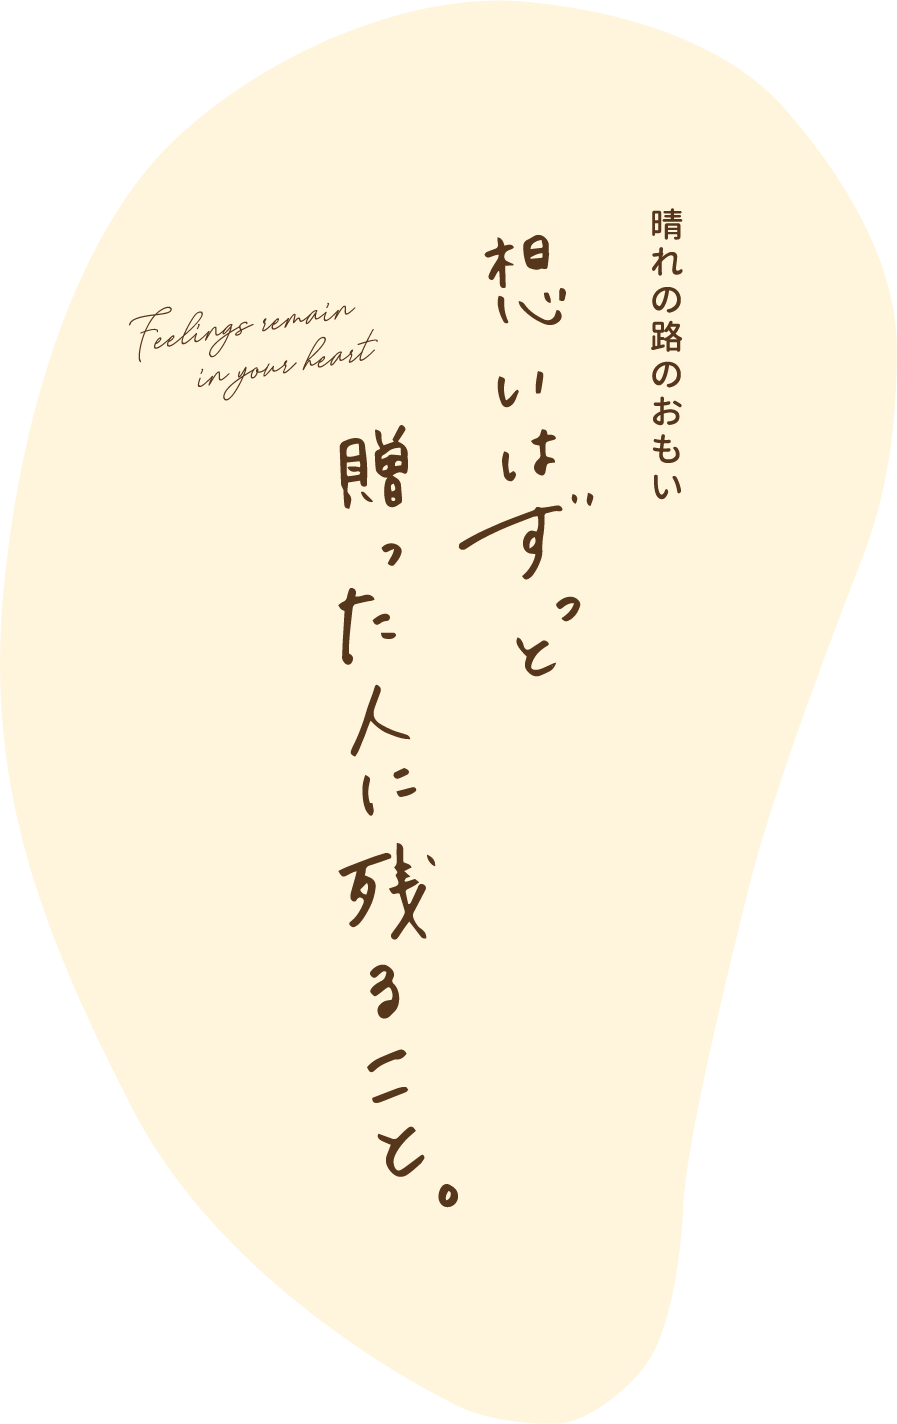 晴れの路のおもい
想いはずっと
贈った人に残ること。
Feelings remain
in your heart